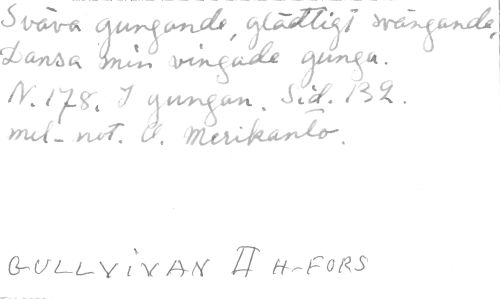 Sväva gungande, gladtligt svängande,
Dansa min vingade gunga.
N. 178. I gungan. Sid. 132.
mel- not. O. Merikanto.
GULLVIVAN II H-FORS